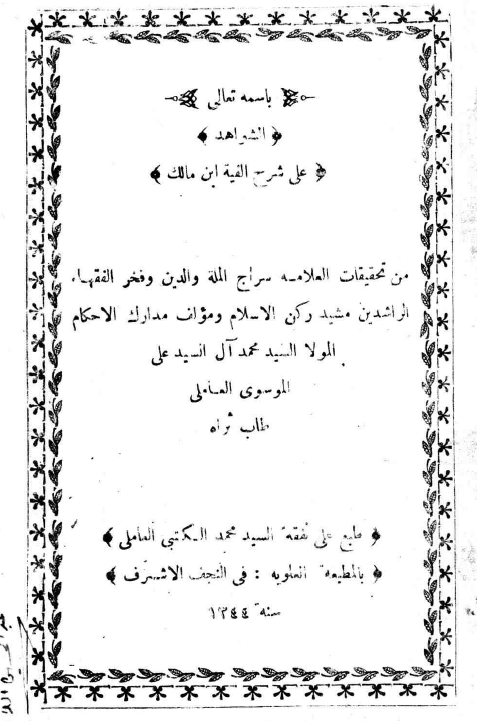 باسمه تعالى
﴿ الشواهد ﴾
﴿ على شرح الفية ابن مالك ﴾
من تحقيقات العلامه سراج الملة والدين وفخر الفقهاء
الراشدين مشيد ركن الاسلام ومؤلف مدارك الاحكام
المولا السيد محمد آل السيد على
الموسوى العاملى
طاب ثراه
﴿ طبع على نفقة السيد محمد الكتبي العاملى ﴾
﴿ بالمطبعة العلويه : فى النجف الاشرف ﴾
سنة ١٣٤٤